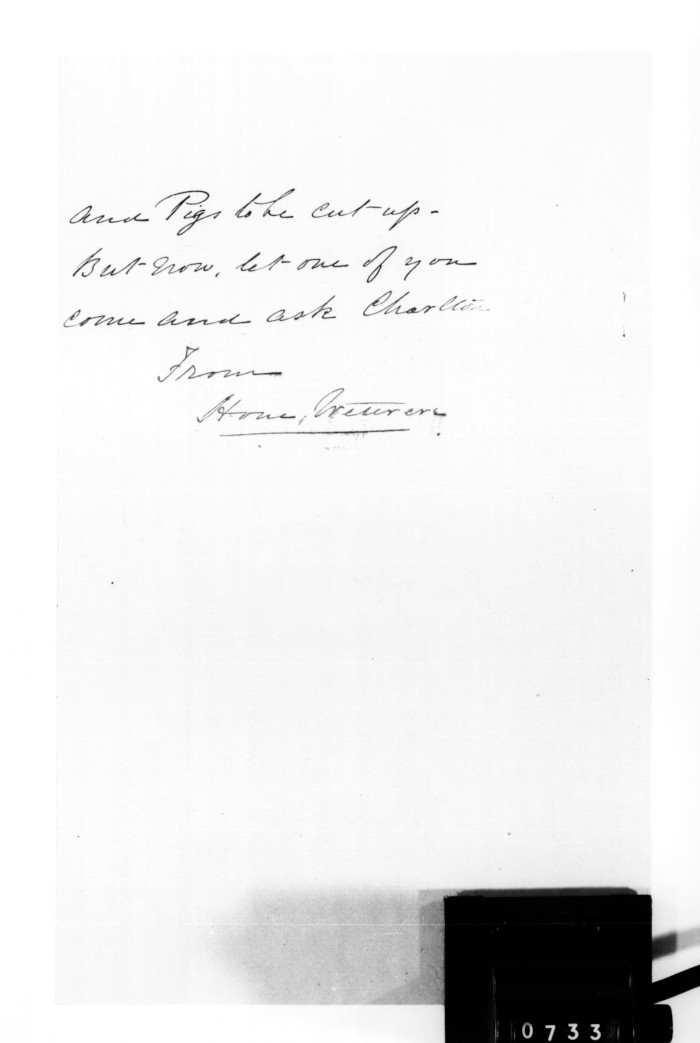 and Pigs to be cut up -
But now, let one of you
come and ask Charlton
From
Hone,
0733